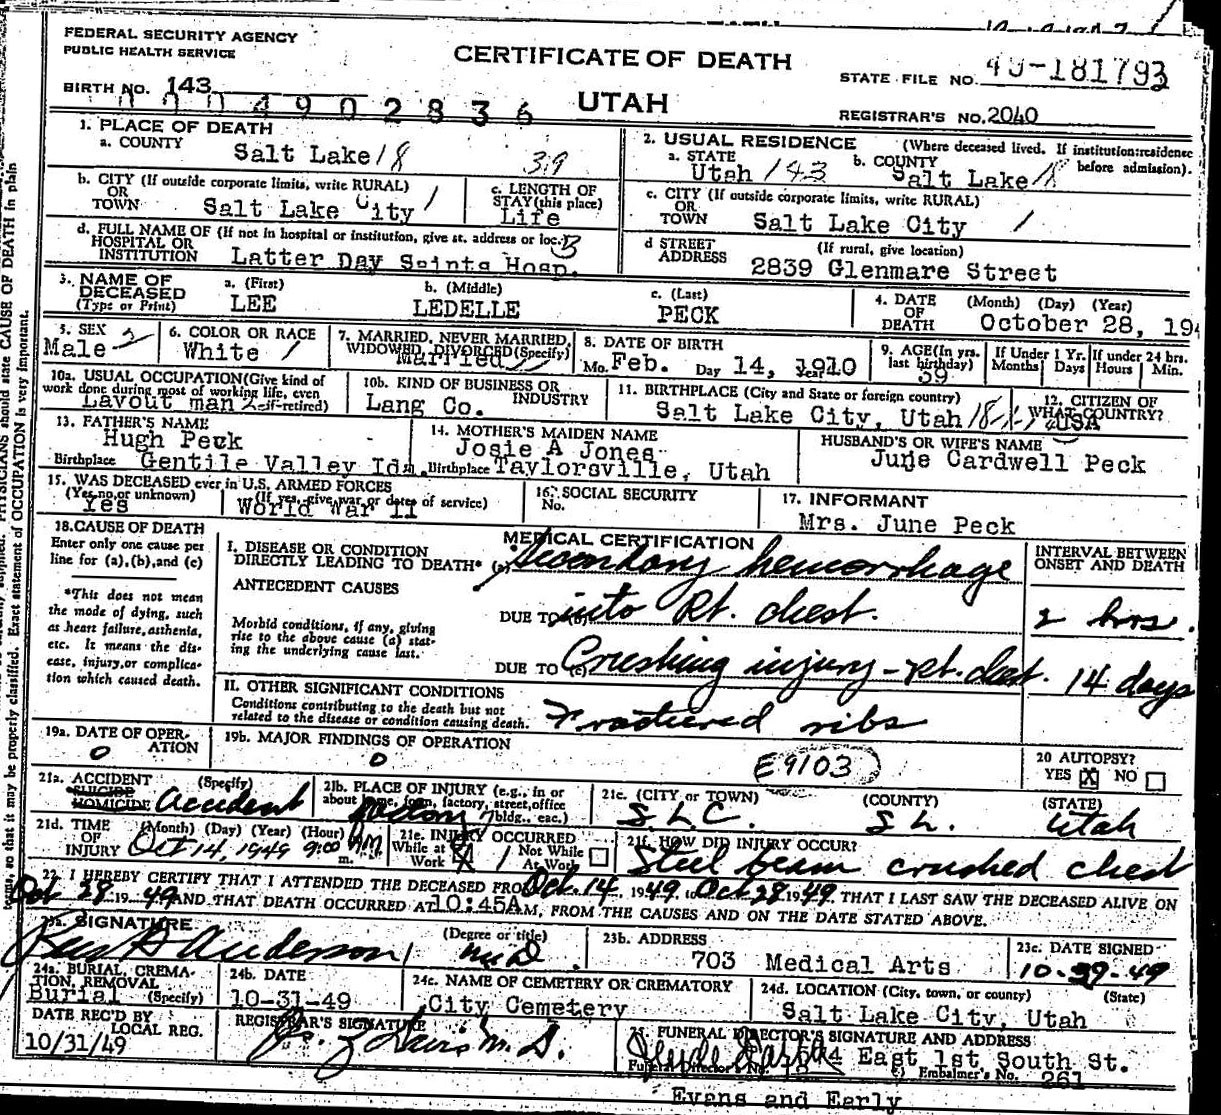 FEDERAL SECURITY AGENCY
PUBLIC HEALTH SERVICE
CERTIFICATE OF DEATH
STATE FILE NO. 49-181793
BIRTH NO. 143
0004902836
UTAH
REGISTRAR'S NO. 2040
1. PLACE OF DEATH
a. COUNTY Salt Lake 18 39
2. USUAL RESIDENCE (Where deceased lived. If institution:residence before admission).
a. STATE Utah 143 b. COUNTY Salt Lake 18
b. CITY (If outside corporate limits, write RURAL)
OR TOWN Salt Lake City 1
c. LENGTH OF STAY (this place) Life
c. CITY (If outside corporate limits, write RURAL)
OR TOWN Salt Lake City 1
d. FULL NAME OF (If not in hospital or institution, give st. address or loc.)
HOSPITAL OR INSTITUTION Latter Day Saints Hosp.
d STREET ADDRESS (If rural, give location)
2839 Glenmare Street
3. NAME OF DECEASED (Type or Print)
a. (First) LEE b. (Middle) LEDELLE c. (Last) PECK
4. DATE OF DEATH (Month) (Day) (Year)
October 28, 194
5. SEX Male 2
6. COLOR OR RACE White 1
7. MARRIED, NEVER MARRIED, WIDOWED, DIVORCED (Specify) Married
8. DATE OF BIRTH
Mo. Feb. Day 14, Year 1910
9. AGE (In yrs. last birthday) 39
If Under 1 Yr. Months Days
If under 24 hrs. Hours Min.
10a. USUAL OCCUPATION (Give kind of work done during most of working life, even if retired)
Layout man
10b. KIND OF BUSINESS OR INDUSTRY
Lang Co.
11. BIRTHPLACE (City and State or foreign country)
Salt Lake City, Utah
12. CITIZEN OF WHAT COUNTRY?
USA
13. FATHER'S NAME
Hugh Peck
Birthplace Gentile Valley Ida.
14. MOTHER'S MAIDEN NAME
Josie A Jones
Birthplace Taylorsville, Utah
HUSBAND'S OR WIFE'S NAME
June Cardwell Peck
15. WAS DECEASED ever in U.S. ARMED FORCES
(Yes, no, or unknown) (If yes, give war or dates of service)
Yes World War II
16. SOCIAL SECURITY No.
17. INFORMANT
Mrs. June Peck
18. CAUSE OF DEATH
Enter only one cause per line for (a), (b), and (c)
*This does not mean the mode of dying, such as heart failure, asthenia, etc. It means the disease, injury, or complication which caused death.
MEDICAL CERTIFICATION
INTERVAL BETWEEN ONSET AND DEATH
I. DISEASE OR CONDITION DIRECTLY LEADING TO DEATH* (a) Secondary hemorrhage
ANTECEDENT CAUSES
Morbid conditions, if any, giving rise to the above cause (a) stating the underlying cause last.
DUE TO (b) into Rt. chest. 2 hrs.
DUE TO (c) Crushing injury - Rt. chest. 14 days
II. OTHER SIGNIFICANT CONDITIONS
Conditions contributing to the death but not related to the disease or condition causing death.
Fractured ribs
19a. DATE OF OPERATION 0
19b. MAJOR FINDINGS OF OPERATION 0
E9103
20 AUTOPSY?
YES X NO
21a. ACCIDENT (Specify) SUICIDE HOMICIDE Accident
21b. PLACE OF INJURY (e.g., in or about home, farm, factory, street, office bldg., etc.)
Factory
21c. (CITY or TOWN) (COUNTY) (STATE)
S.L.C. S L. Utah
21d. TIME OF INJURY (Month) (Day) (Year) (Hour) m.
Oct 14, 1949 9:00 AM
21e. INJURY OCCURRED
While at Work X Not While At Work
21f. HOW DID INJURY OCCUR?
Steel beam crushed chest
22. I HEREBY CERTIFY THAT I ATTENDED THE DECEASED FROM Oct. 14, 1949, to Oct 28 1949, THAT I LAST SAW THE DECEASED ALIVE ON
Oct 28 1949 AND THAT DEATH OCCURRED AT 10:45A M, FROM THE CAUSES AND ON THE DATE STATED ABOVE.
23a. SIGNATURE (Degree or title)
Anderson M D.
23b. ADDRESS
703 Medical Arts
23c. DATE SIGNED
10-29-49
24a. BURIAL, CREMATION, REMOVAL (Specify)
Burial
24b. DATE
10-31-49
24c. NAME OF CEMETERY OR CREMATORY
City Cemetery
24d. LOCATION (City, town, or county) (State)
Salt Lake City, Utah
DATE REC'D BY LOCAL REG.
10/31/49
REGISTRAR'S SIGNATURE
M. D.
25. FUNERAL DIRECTOR'S SIGNATURE AND ADDRESS
East 1st South St.
Embalmer's No. 261
Evans and Early